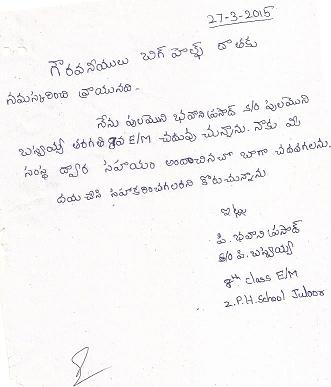 27-3-2015
గౌరవనీయులు బిగ్ హెల్ప్ దాతకు
నమస్కరించి వ్రాయునది.
నేను పులమొని భవాని ప్రసాద్ S/o పులమొని
బక్కయ్య తరగతి 8వ E/M చదువు చున్నాను. నాకు మీ
సంస్థ ద్వారా సహాయం అందించినచో బాగా చదవగలను.
దయచేసి సహకరించగలరని కోరుచున్నాను
ఇట్లు
పి. భవాని ప్రసాద్
S/o పి. బక్కయ్య
8th class E/M
Z.P.H.School Juloor